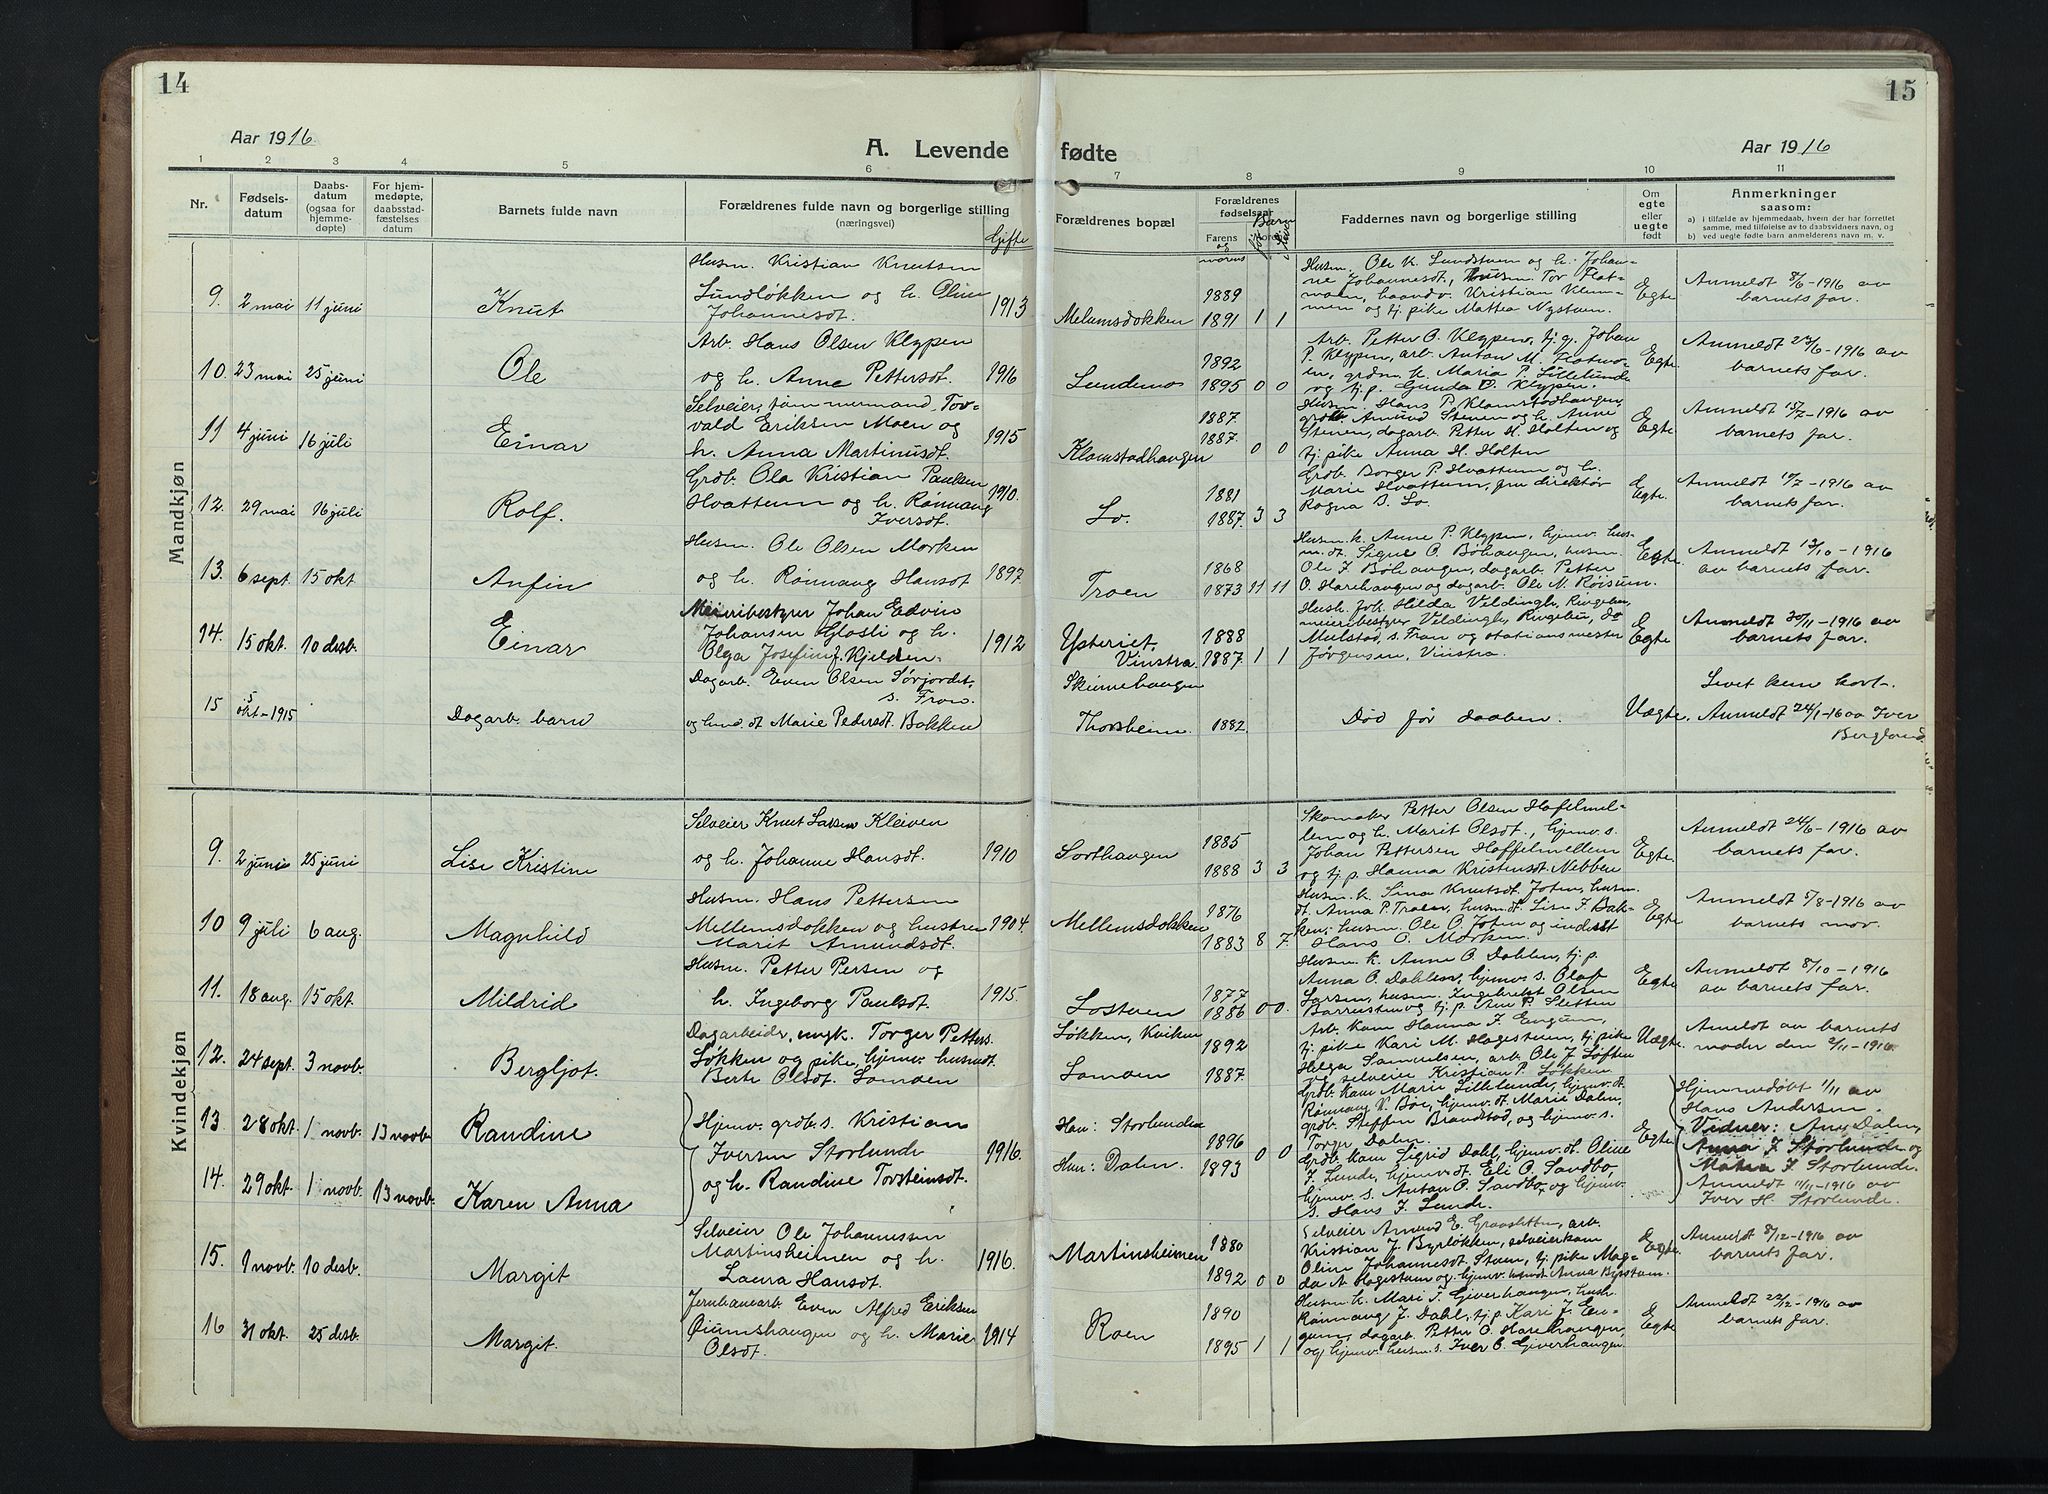 14
15
Aar 1916.
A. Levende fødte
Aar 1916
1 2 3 4 5 6 7 8 9 10 11
Nr.
Fødsels-
datum
Daabs-
datum
(ogsaa for
hjemme-
døpte)
For hjem-
medøpte,
daabsstad-
fæstelses
datum
Barnets fulde navn
Forældrenes fulde navn og borgerlige stilling
(næringsvei)
Gifte
Forældrenes bopæl
Forældrenes
fødselsaar
Farens
og
morens
Faddernes navn og borgerlige stilling
Om
egte
eller
uegte
født
Anmerkninger
saasom:
a) i tilfælde av hjemmedaab, hvem der har forrettet
samme, med tilføielse av to daabsvidners navn, og
b) ved uegte fødte barn anmelderens navn m. v.
Mandkjøn
9. 2 mai 11 juni Knut
Husm. Kristian Knutsen
Lundløkken og h. Oline
Johannesdt. 1913
Melumsdokken 1889
1891 1 1
Husm. Ole K. Lundstuen og h. Johan-
ne Johannesdt., Husm. Tor Flat-
moen, haandv. Kristian Klem-
men og tj. pike Mattea Nystuen.
Egte
Anmeldt 8/6-1916 av
barnets far.
10. 23 mai 25 juni Ole
Arb. Hans Olsen Klypen
og h. Anne Pettersdt. 1916
Lundemo 1892
1895 0 0
Arb. Petter O. Klypen, tj. g. Johan
P. Klypen, arb. Anton M. Flatmo-
en, grdm. k. Maria P. Lillelunde
og tj. p. Gunda O. Klypen.
Egte
Anmeldt 22/6-1916 av
barnets far.
11 4 juni 16 juli Einar
Selveier, tømmermand Tor-
vald Eriksen Moen og
h. Anna Martinusdt. 1915
Klomstadhaugen 1887.
1887. 0 0
Husm. Hans P. Klomstadhaugen,
grdb. Amund Stenen og h. Anne
Stenen, dagarb. Petter H. Holten og
tj. pike Anna H. Holten
Egte
Anmeldt 15/7-1916 av
barnets far.
12. 29 mai 16 juli Rolf.
Grdb. Ola Kristian Paulsen
Hvattum og h. Rønnaug
Iversdt. 1910.
Lo. 1881
1887. 3 3
Grdb. Borger P. Hvattum og h.
Marie Hvattum, fru direktør
Ragna B. Lo.
Egte.
Anmeldt 10/7-1916 av
barnets far.
13. 6 sept. 15 okt Anfin
Husm. Ole Olsen Morken
og h. Rønnaug Hansdt 1897.
Troen 1868
1873 11 11
Husm. k. Anne P. Klypen, hjemv. hus-
m. dt. Signe O. Bøhaugen, husm.
Ole J. Bøhaugen, dagarb. Petter
O. Harehaugen og dagarb. Ole N. Røisum.
Egte
Anmeldt 13/10-1916
av barnets far.
14. 15 okt. 10 desb. Einar
Meieribestyrer Johan Edvin
Johansen Glosli og h.
Olga Josefine f. Kjelden. 1912
Ysteriet.
Vinstra. 1888
1887. 1 1
Hush. frk. Hilda Veldingh, Ringebu,
meieribestyr Veldingh, Ringebu, do
Mulstad, s. Fron og stationsmester
Jørgensen, Vinstra.
Egte
Anmeldt 30/11-1916 av
barnets far.
15 5
okt-1915 Dagarb. barn
Dagarb. Even Olsen Sørjordet,
s. Fron.
og husm. dt Marie Pedersdt. Bakken
Skurvehaugen
Thorsheim 1882.
Død før daaben.
Uegte.
Levet kun kort.
Anmeldt 24/1-16 av Iver
Berglund.
Kvindekjøn
9. 2 juni 25 juni Lise Kristine
Selveier Knut Larsen Kleiven
og h. Johanne Hansdt. 1910
Sorthaugen 1885
1888 3 3
Skomaker Petter Olsen Høffelmel-
lem og h. Marit Olsdt., hjemv. s.
Johan Pettersen Høffelmellem
og tj. p. Hanna Kristensdt Nebben
Egte.
Anmeldt 24/6-1916 av
barnets far.
10 9 juli 6 aug. Magnhild
Husm. Hans Pettersen
Mellemsdokken og hustru
Marit Amundsdt. 1904.
Mellemsdokken 1876
1883 8 7
Husm. k. Sina Knutsdt. Joten, husm.
dt. Anna P. Troen, husm. dt. Lise J. Bak-
ken, husm. Ole O. Joten og inderst
Hans O. Morken.
Egte
Anmeldt 5/8-1916 av
barnets mor.
11. 18 aug. 15 okt. Mildrid
Husm. Petter Persen og
h. Ingeborg Paulsdt. 1915.
Lostuen 1877
1886 0 0.
Husm. k. Anne O. Dahlen, tj. p.
Anna O. Dahlen, hjemv. s. Olaf
Larsen, husm. Ingebrikt Olsen
Barrusten og tj. p. Ane P. Sletten
Egte
Anmeldt 8/10-1916
av barnets far.
12. 24 sept. 3 novb. Bergljot.
Dagarbeider, ungk. Torger Petters.
Løkken og pike, hjemv. husmdt.
Berte Olsdt. Lomoen
Løkken, Kviken
Lomoen 1892
1887.
Arb. kone Hanna J. Engum,
tj. pike Kari M. Hagestuen, tj. pike
Helga Samuelsen, arb. Ole J. Løften
og selveier Kristian P. Løkken.
Uegte
Anmeldt av barnets
moder den 2/11-1916.
13 28 okt. 1 novb. 13 novb. Randine
14. 29 okt. 1 novb. 13 novb. Karen Anna
Hjemv. grdb. s. Kristian
Iversen Storlunde
og h. Randine Torsteinsdt. 1916.
Han: Storlunden
Hun: Dalen. 1896
1893 0 0
Grdb. kone Marie Lillelunde, hjemv. dt.
Rønnaug V. Bøe, hjemv. dt. Marie Dalen,
grdb. Steffen Brandstad, og hjemv. s.
Torger Dalen.
Grdb. kone Sigrid Dahl, hjemv. dt. Oline
J. Lunde, hjemv. dt. Eli O. Sandbo,
hjemv. s. Anton O. Sandbo, og hjemv.
s. Hans J. Lunde.
Egte
Hjemmedøbt 1/11 av
Hans Andersen.
Vidner: Ane Dalen,
Anna J. Storlunde og
Mathea J. Storlunde.
Anmeldt 11/11-1916 av
Iver H. Storlunde.
15. 1 novb. 10 desb. Margit
Selveier Ole Johannessen
Martinsheimen og h.
Laura Hansdt. 1916.
Martinsheimen 1880
1892 0 0
Selveier Amund E. Graasletten, arb.
Kristian J. Byrløkken, selveierkone
Oline Johannesdt. Stuen, tj. pike Mag-
da A. Hagestuen og hjemv. husmdt. Anna Byrstuen.
Egte
Anmeldt 8/12-1916 av
barnets far.
16 31 okt. 25 desb. Margit.
Jernbanearb. Even Alfred Eriksen
Øiumshaugen og h. Marie
Olsdt. 1914
Roen 1890
1895 1 1
Husm. k. Mari T. Giverhaugen, hush.
Rønnaug J. Dahl, tj. p. Kari J. En-
gum, dagarb. Petter O. Harehaugen,
og hjemv. husm. s. Iver O. Giverhaugen.
Egte
Anmeldt 22/12-1916 av
barnets far.